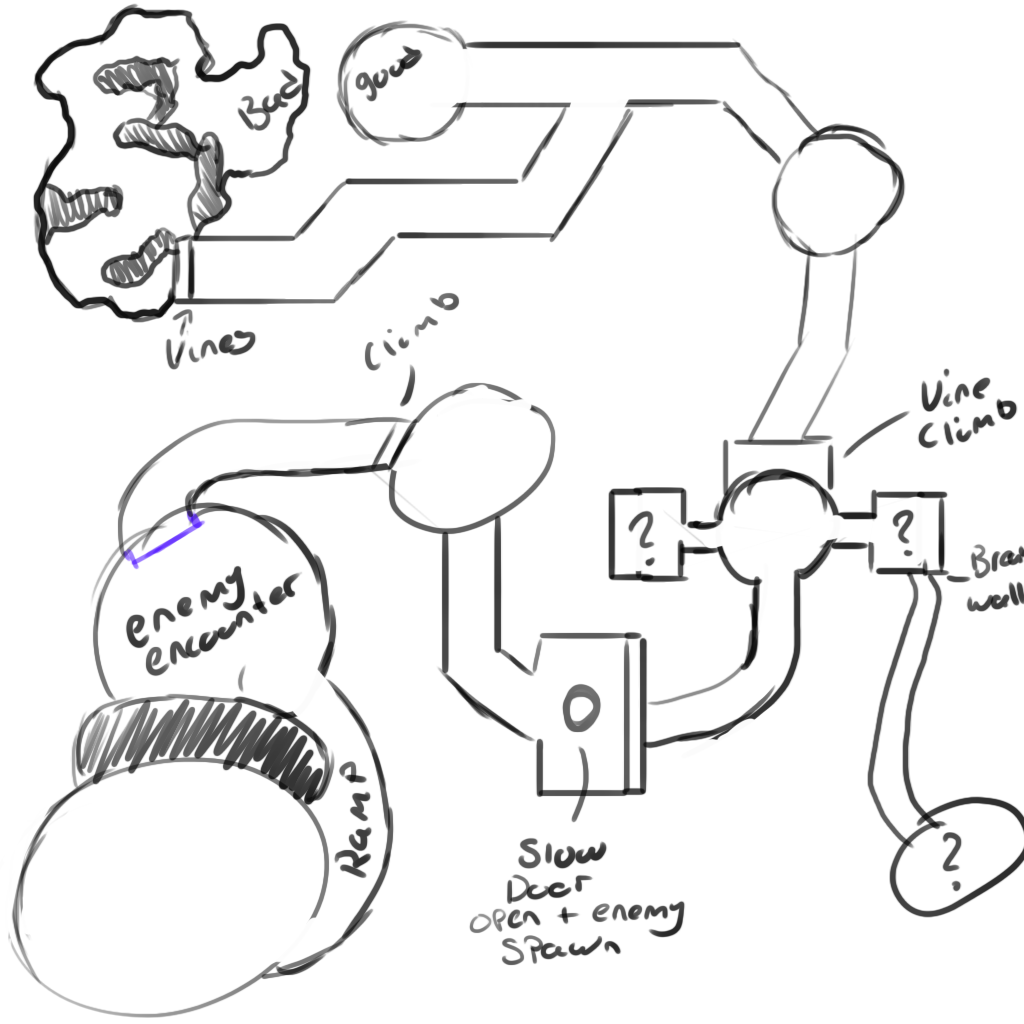 Bad
good
Vines
Climb
Vine
Climb
?
?
wall
enemy
encounter
Ramp
Slow
Door
open + enemy
Spawn
?